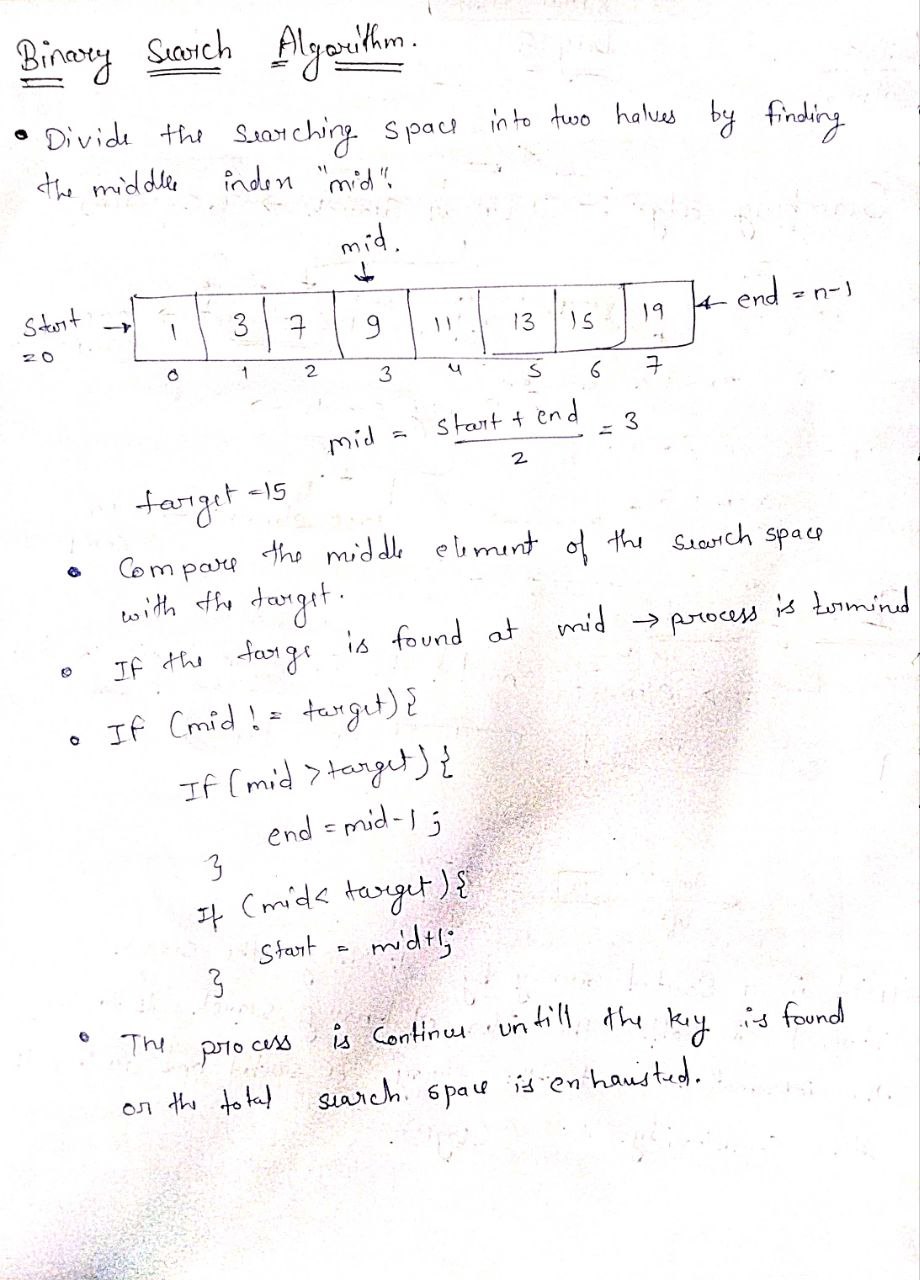 Binary Search Algorithm.
• Divide the Searching space into two halves by finding
the middle index "mid".
mid.
↓
Start → 1 3 7 9 11 13 15 19 ← end = n-1
=0
0 1 2 3 4 5 6 7
mid = Start + end / 2 = 3
target =15
• Compare the middle element of the search space
with the target.
• If the targe is found at mid → process is termined
• If (mid != target) {
If (mid > target) {
end = mid-1;
}
If (mid < target) {
Start = mid+1;
}
• The process is Continue untill the key is found
or the total search space is enhausted.